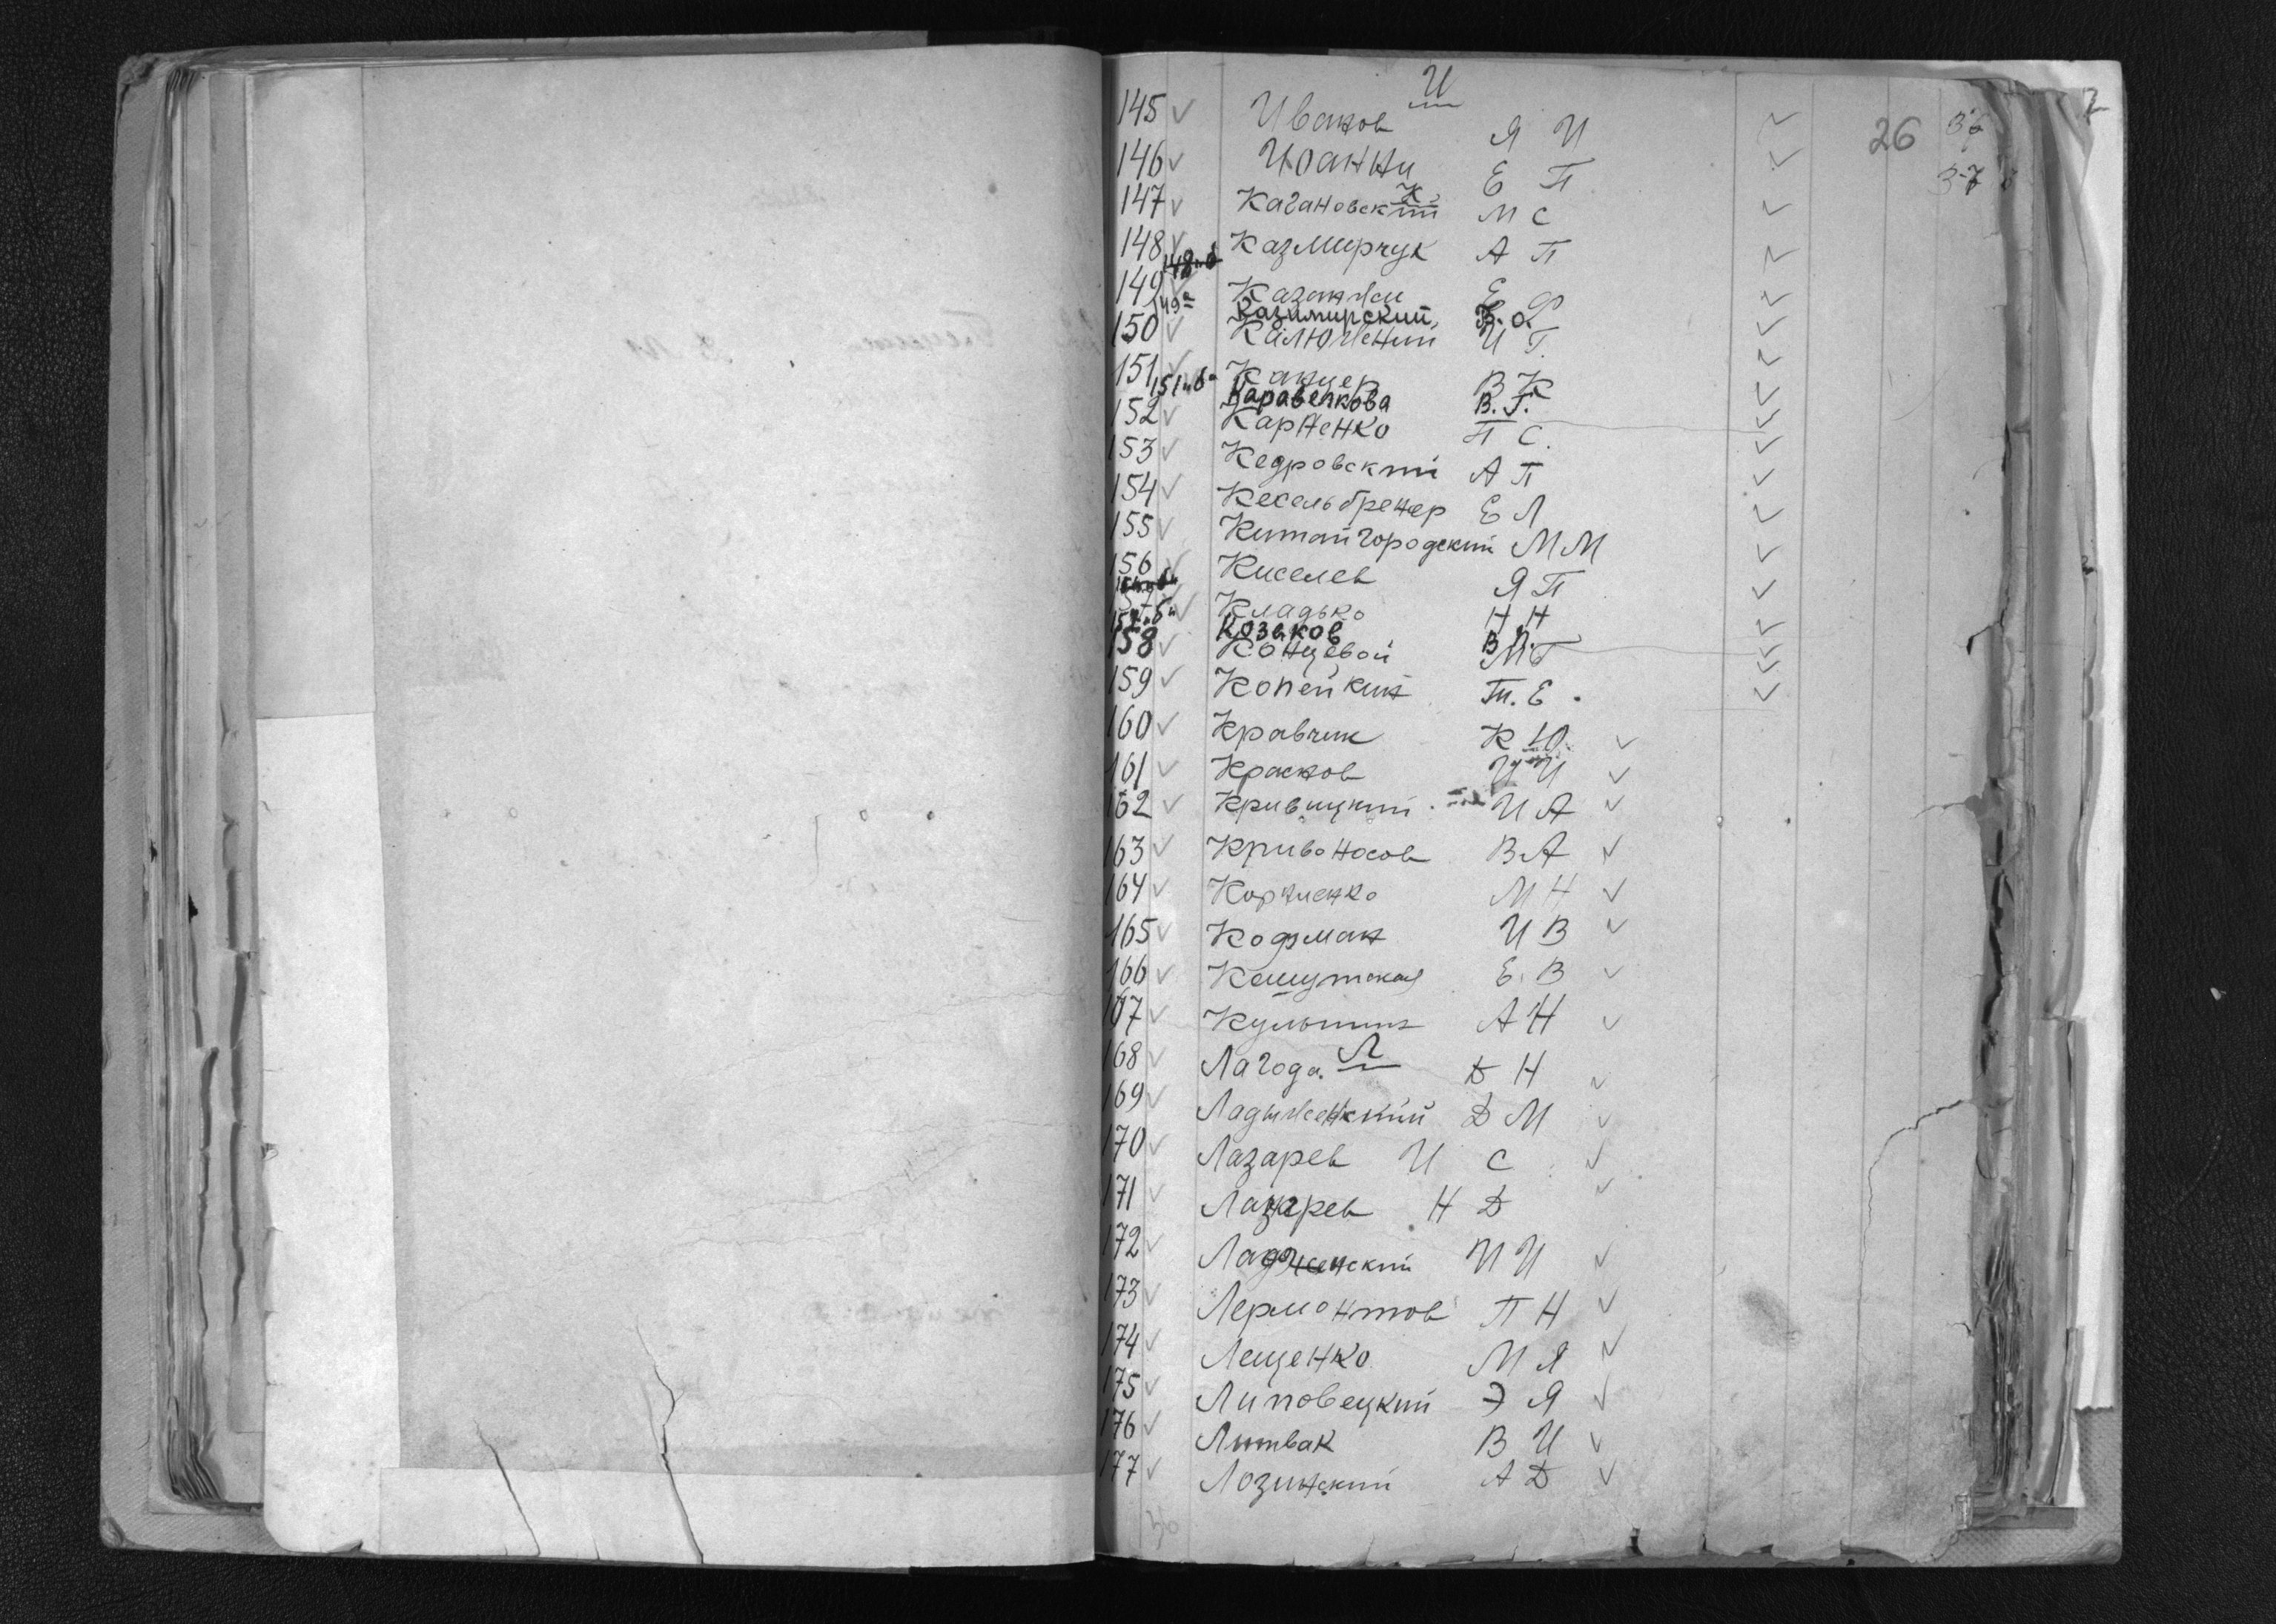 И
145 Иванов Я И
26
146 Иоанни Е П
К
147 Кагановский М С
148 Казмирчук А П
148"б
149 Казанжи Е Ф
149а Казимирский, В. О.
150 Калюжний И Г.
151 Канцер В К
151"б" Каравенкова В. Г.
152 Карпенко П С.
153 Кедровский А П
154 Кесельбренер Е Л
155 Китайгородский М М
156 Киселев Я П
157 Кладько Н Н
157"б" Козьков В П.
158 Концевой М Г
159 Копейкин Ти. Е.
160 Кравчик К Ю.
161 Краснов И И
162 Кривицкий И А
163 Кривоносов В А
164 Корниенко М Н
165 Кофман И В
166 Кошутская Е. В
167 Кульпин А Н
Л
168 Лагода. Д Н
169 Ладыженский Д М
170 Лазарев И С
171 Лазарев Н Д
172 Ладженский И И
173 Лермонтов П Н
174 Лещенко М Я
175 Липовецкий Э Я
176 Литвак В И
177 Лозинский А Д